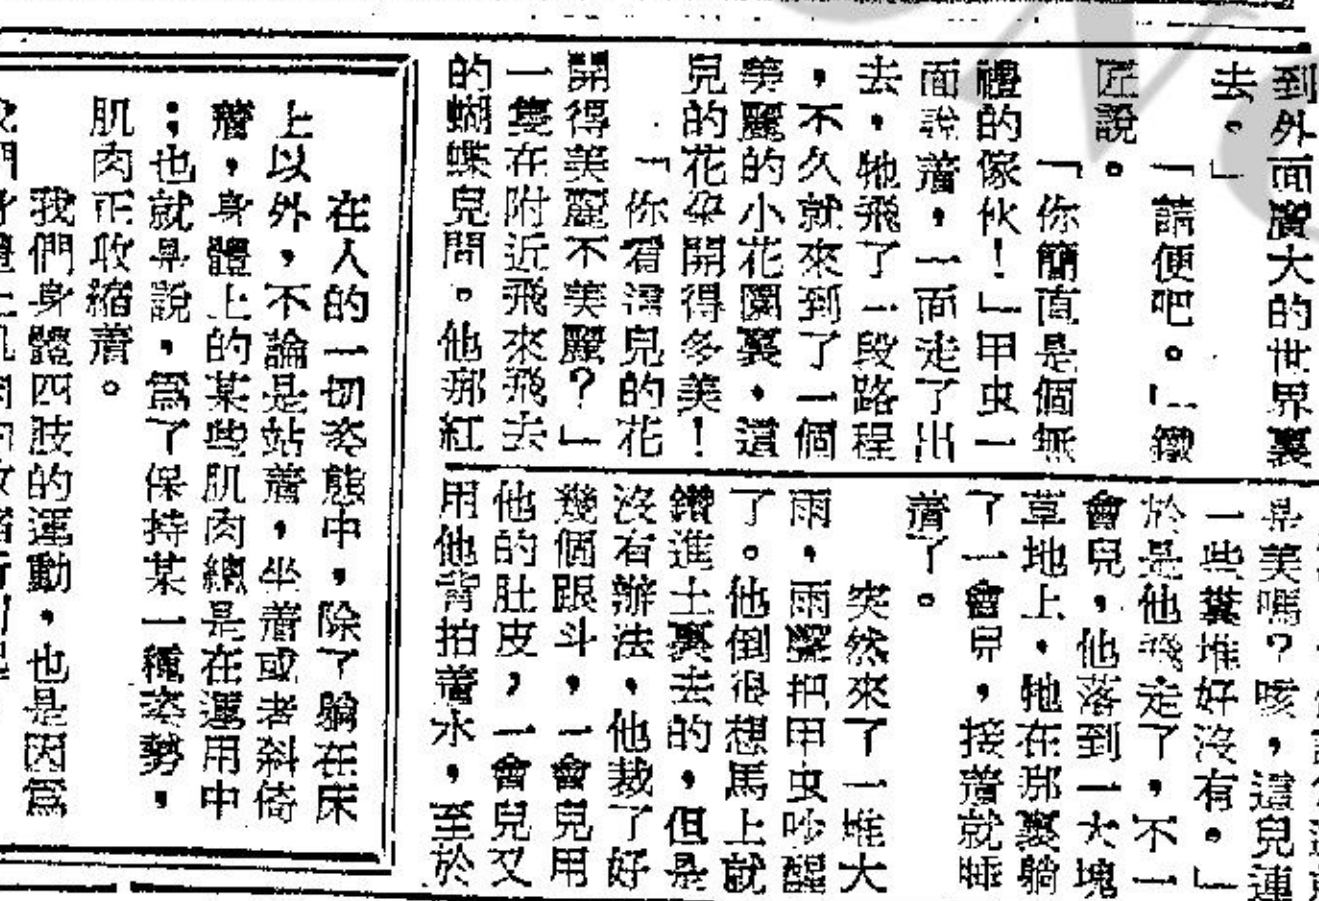 到外面廣大的世界裏
去。」
「請便吧。」鐵
匠說。
「你簡直是個無
禮的傢伙！」甲虫一
面說着，一面走了出
去，牠飛了一段路程
，不久就來到了一個
美麗的小花園裏，這
兒的花朶開得多美！
「你看這兒的花
開得美麗不美麗？」
一隻在附近飛來飛去
的蝴蝶兒問。他那紅
是美嗎？咳，這兒連
一些糞堆好沒有。」
於是他飛走了，不一
會兒，他落到一大塊
草地上，牠在那裏躺
了一會兒，接着就睡
着了。
突然來了一堆大
雨，雨聲把甲虫吵醒
了。他倒很想馬上就
鑽進土裏去的，但是
沒有辦法，他栽了好
幾個跟斗，一會兒用
他的肚皮，一會兒又
用他背拍着水，至於
在人的一切姿態中，除了躺在床
上以外，不論是站着，坐着或者斜倚
着，身體上的某些肌肉總是在運用中
；也就是說，爲了保持某一種姿勢，
肌肉正收縮着。
我們身體四肢的運動，也是因爲